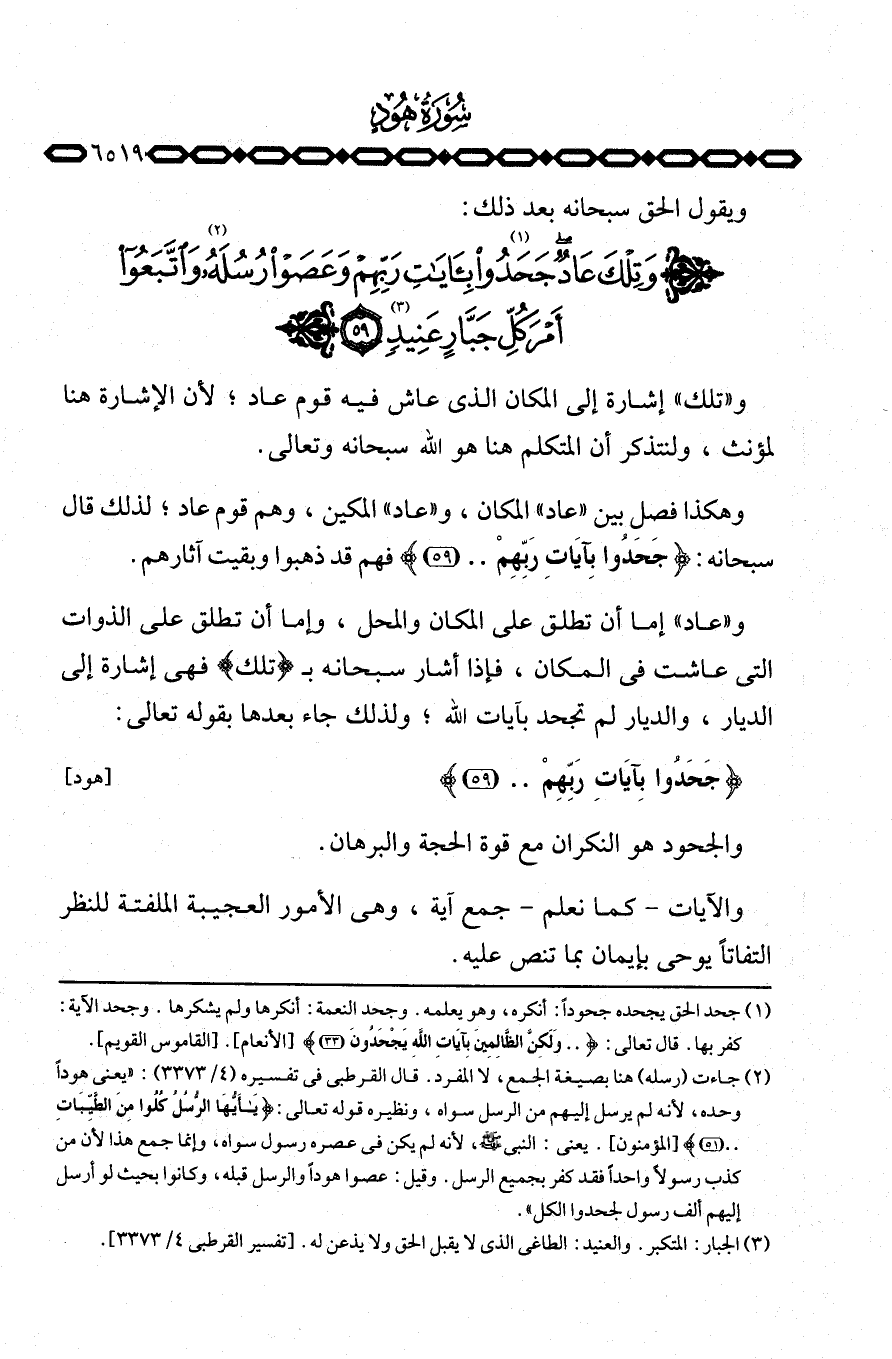 سُورَةُ هُودٍ
٦٥١٩
ويقول الحق سبحانه بعد ذلك :
وَتِلْكَ عَادٌ ۖ جَحَدُوا۟(١) بِـَٔايَـٰتِ رَبِّهِمْ وَعَصَوْا۟ رُسُلَهُۥ(٢) وَٱتَّبَعُوٓا۟
أَمْرَ كُلِّ جَبَّارٍ(٣) عَنِيدٍ ٥٩
و«تلك» إشارة إلى المكان الذى عاش فيه قوم عاد ؛ لأن الإشارة هنا
لمؤنث ، ولنتذكر أن المتكلم هنا هو الله سبحانه وتعالى .
وهكذا فصل بين «عاد» المكان ، و«عاد» المكين ، وهم قوم عاد ؛ لذلك قال
سبحانه : ﴿ جَحَدُوا بِآيَاتِ رَبِّهِمْ .. (٥٩) ﴾ فهم قد ذهبوا وبقيت آثارهم .
و«عاد» إما أن تطلق على المكان والمحل ، وإما أن تطلق على الذوات
التى عاشت فى المكان ، فإذا أشار سبحانه بـ ﴿تلك﴾ فهى إشارة إلى
الديار ، والديار لم تجحد بآيات الله ؛ ولذلك جاء بعدها بقوله تعالى :
﴿ جَحَدُوا بِآيَاتِ رَبِّهِمْ .. (٥٩) ﴾ [هود]
والجحود هو النكران مع قوة الحجة والبرهان .
والآيات - كما نعلم - جمع آية ، وهى الأمور العجيبة الملفتة للنظر
التفاتاً يوحى بإيمان بما تنص عليه .
(١) جحد الحق يجحده جحوداً : أنكره ، وهو يعلمه . وجحد النعمة : أنكرها ولم يشكرها . وجحد الآية :
كفر بها . قال تعالى : ﴿ .. وَلَكِنَّ الظَّالِمِينَ بِآيَاتِ اللَّهِ يَجْحَدُونَ (٣٣) ﴾ [الأنعام] . [القاموس القويم] .
(٢) جاءت (رسله) هنا بصيغة الجمع ، لا المفرد . قال القرطبى فى تفسيره (٤/ ٣٣٧٣) : «يعنى هوداً
وحده ، لأنه لم يرسل إليهم من الرسل سواه ، ونظيره قوله تعالى : ﴿ يَـٰأَيُّهَا الرُّسُلُ كُلُوا مِنَ الطَّيِّبَاتِ
.. (٥١) ﴾ [المؤمنون] . يعنى : النبى ﷺ ، لأنه لم يكن فى عصره رسول سواه ، وإنما جمع هذا لأن من
كذب رسولاً واحداً فقد كفر بجميع الرسل . وقيل : عصوا هوداً والرسل قبله ، وكانوا بحيث لو أرسل
إليهم ألف رسول لجحدوا الكل» .
(٣) الجبار : المتكبر . والعنيد : الطاغى الذى لا يقبل الحق ولا يذعن له . [تفسير القرطبى ٤/ ٣٣٧٣] .